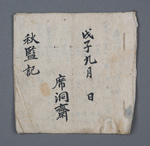 戊子九月　日
席洞齋
秋監記